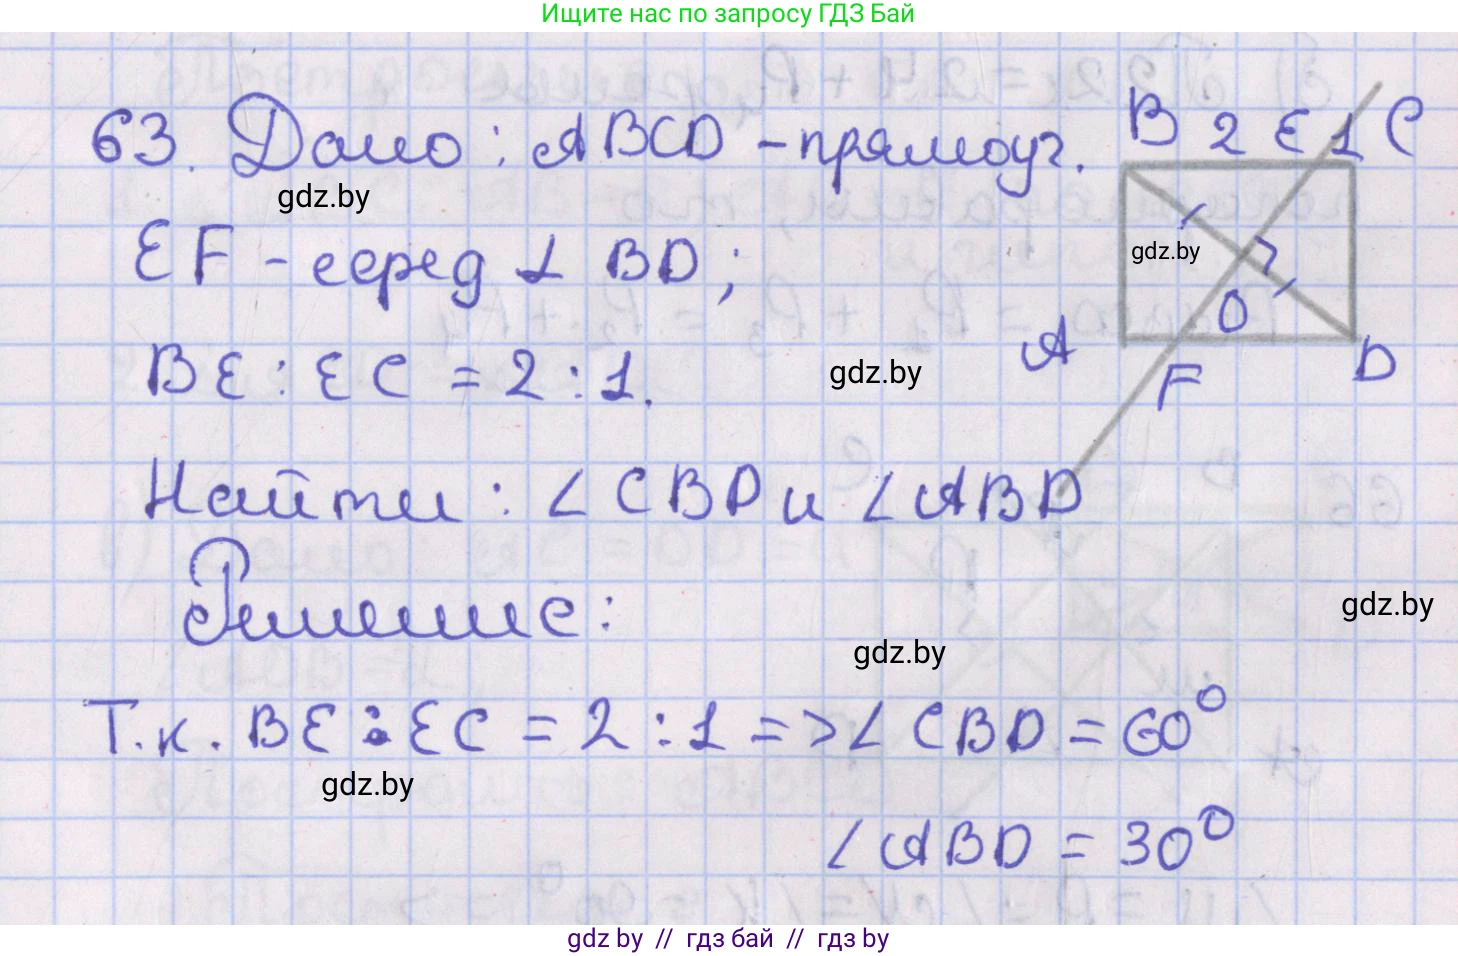 Ищите нас по запросу ГДЗ Бай
63. Дано: ABCD - прямоуг.
B 2 E 1 C
gdz.by
EF - серед ⊥ BD;
gdz.by
O
A
F
D
BE : EC = 2 : 1.
gdz.by
Найти: ∠CBD и ∠ABD
Решение:
gdz.by
gdz.by
Т.к. BE : EC = 2 : 1 => ∠CBD = 60°
gdz.by
∠ABD = 30°
gdz by // гдз бай // гдз by